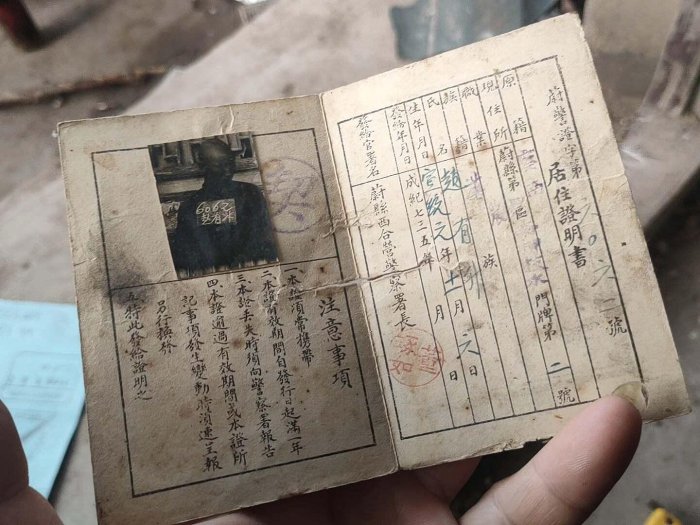 蔚警證字第六〇六二號
居住證明書
原籍
現住所 蔚縣第 區 門牌第二號
職業
族籍 族
氏名 趙有
生年月日 宣統元年十一月六日
發給年月日 成紀七三五年 月 日
發給官署名 蔚縣西合營警察署長
注意事項
一本證須常携帶
二本證有效期間自發行日起滿一年
三本證丢失時須向警察署報告
四本證逾過有效期間或本證所
記事項發生變動時須速呈報
另行換發
五特此發給證明之
6062